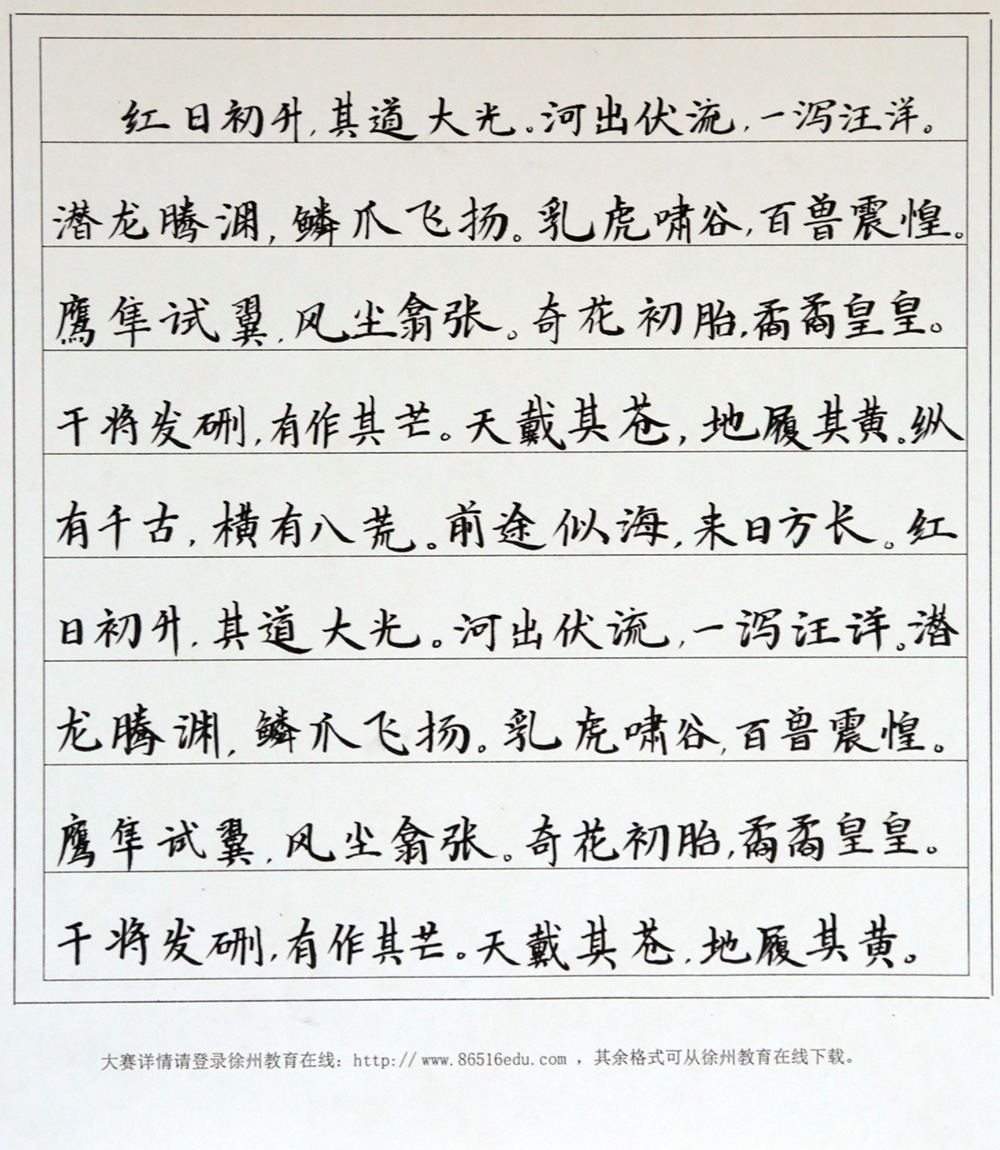 红日初升,其道大光。河出伏流,一泻汪洋。
潜龙腾渊,鳞爪飞扬。乳虎啸谷,百兽震惶。
鹰隼试翼,风尘翕张。奇花初胎,矞矞皇皇。
干将发硎,有作其芒。天戴其苍,地履其黄。纵
有千古,横有八荒。前途似海,来日方长。红
日初升,其道大光。河出伏流,一泻汪洋。潜
龙腾渊,鳞爪飞扬。乳虎啸谷,百兽震惶。
鹰隼试翼,风尘翕张。奇花初胎,矞矞皇皇。
干将发硎,有作其芒。天戴其苍,地履其黄。
大赛详情请登录徐州教育在线：http://www.86516edu.com，其余格式可从徐州教育在线下载。